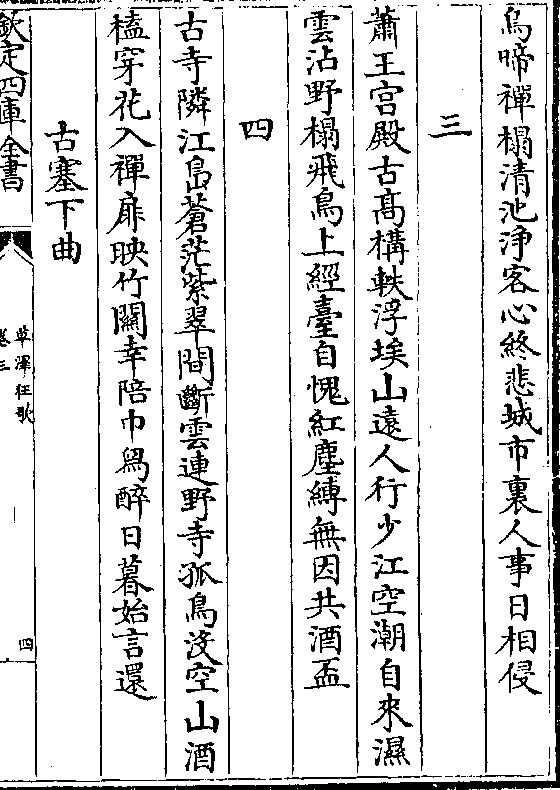 鳥啼禪榻清池浄客心終悲城市裏人事日相侵
三
蕭王宫殿古髙構軼浮埃山遠人行少江空潮自來濕
雲沾野榻飛鳥上經臺自愧紅塵縛無因共酒盃
四
古寺隣江島蒼茫紫翠間斷雲連野寺孤鳥没空山酒
榼穿花入禪扉映竹關幸陪巾舄醉日暮始言還
古塞下曲
欽定四庫全書
草澤狂歌
卷三
四